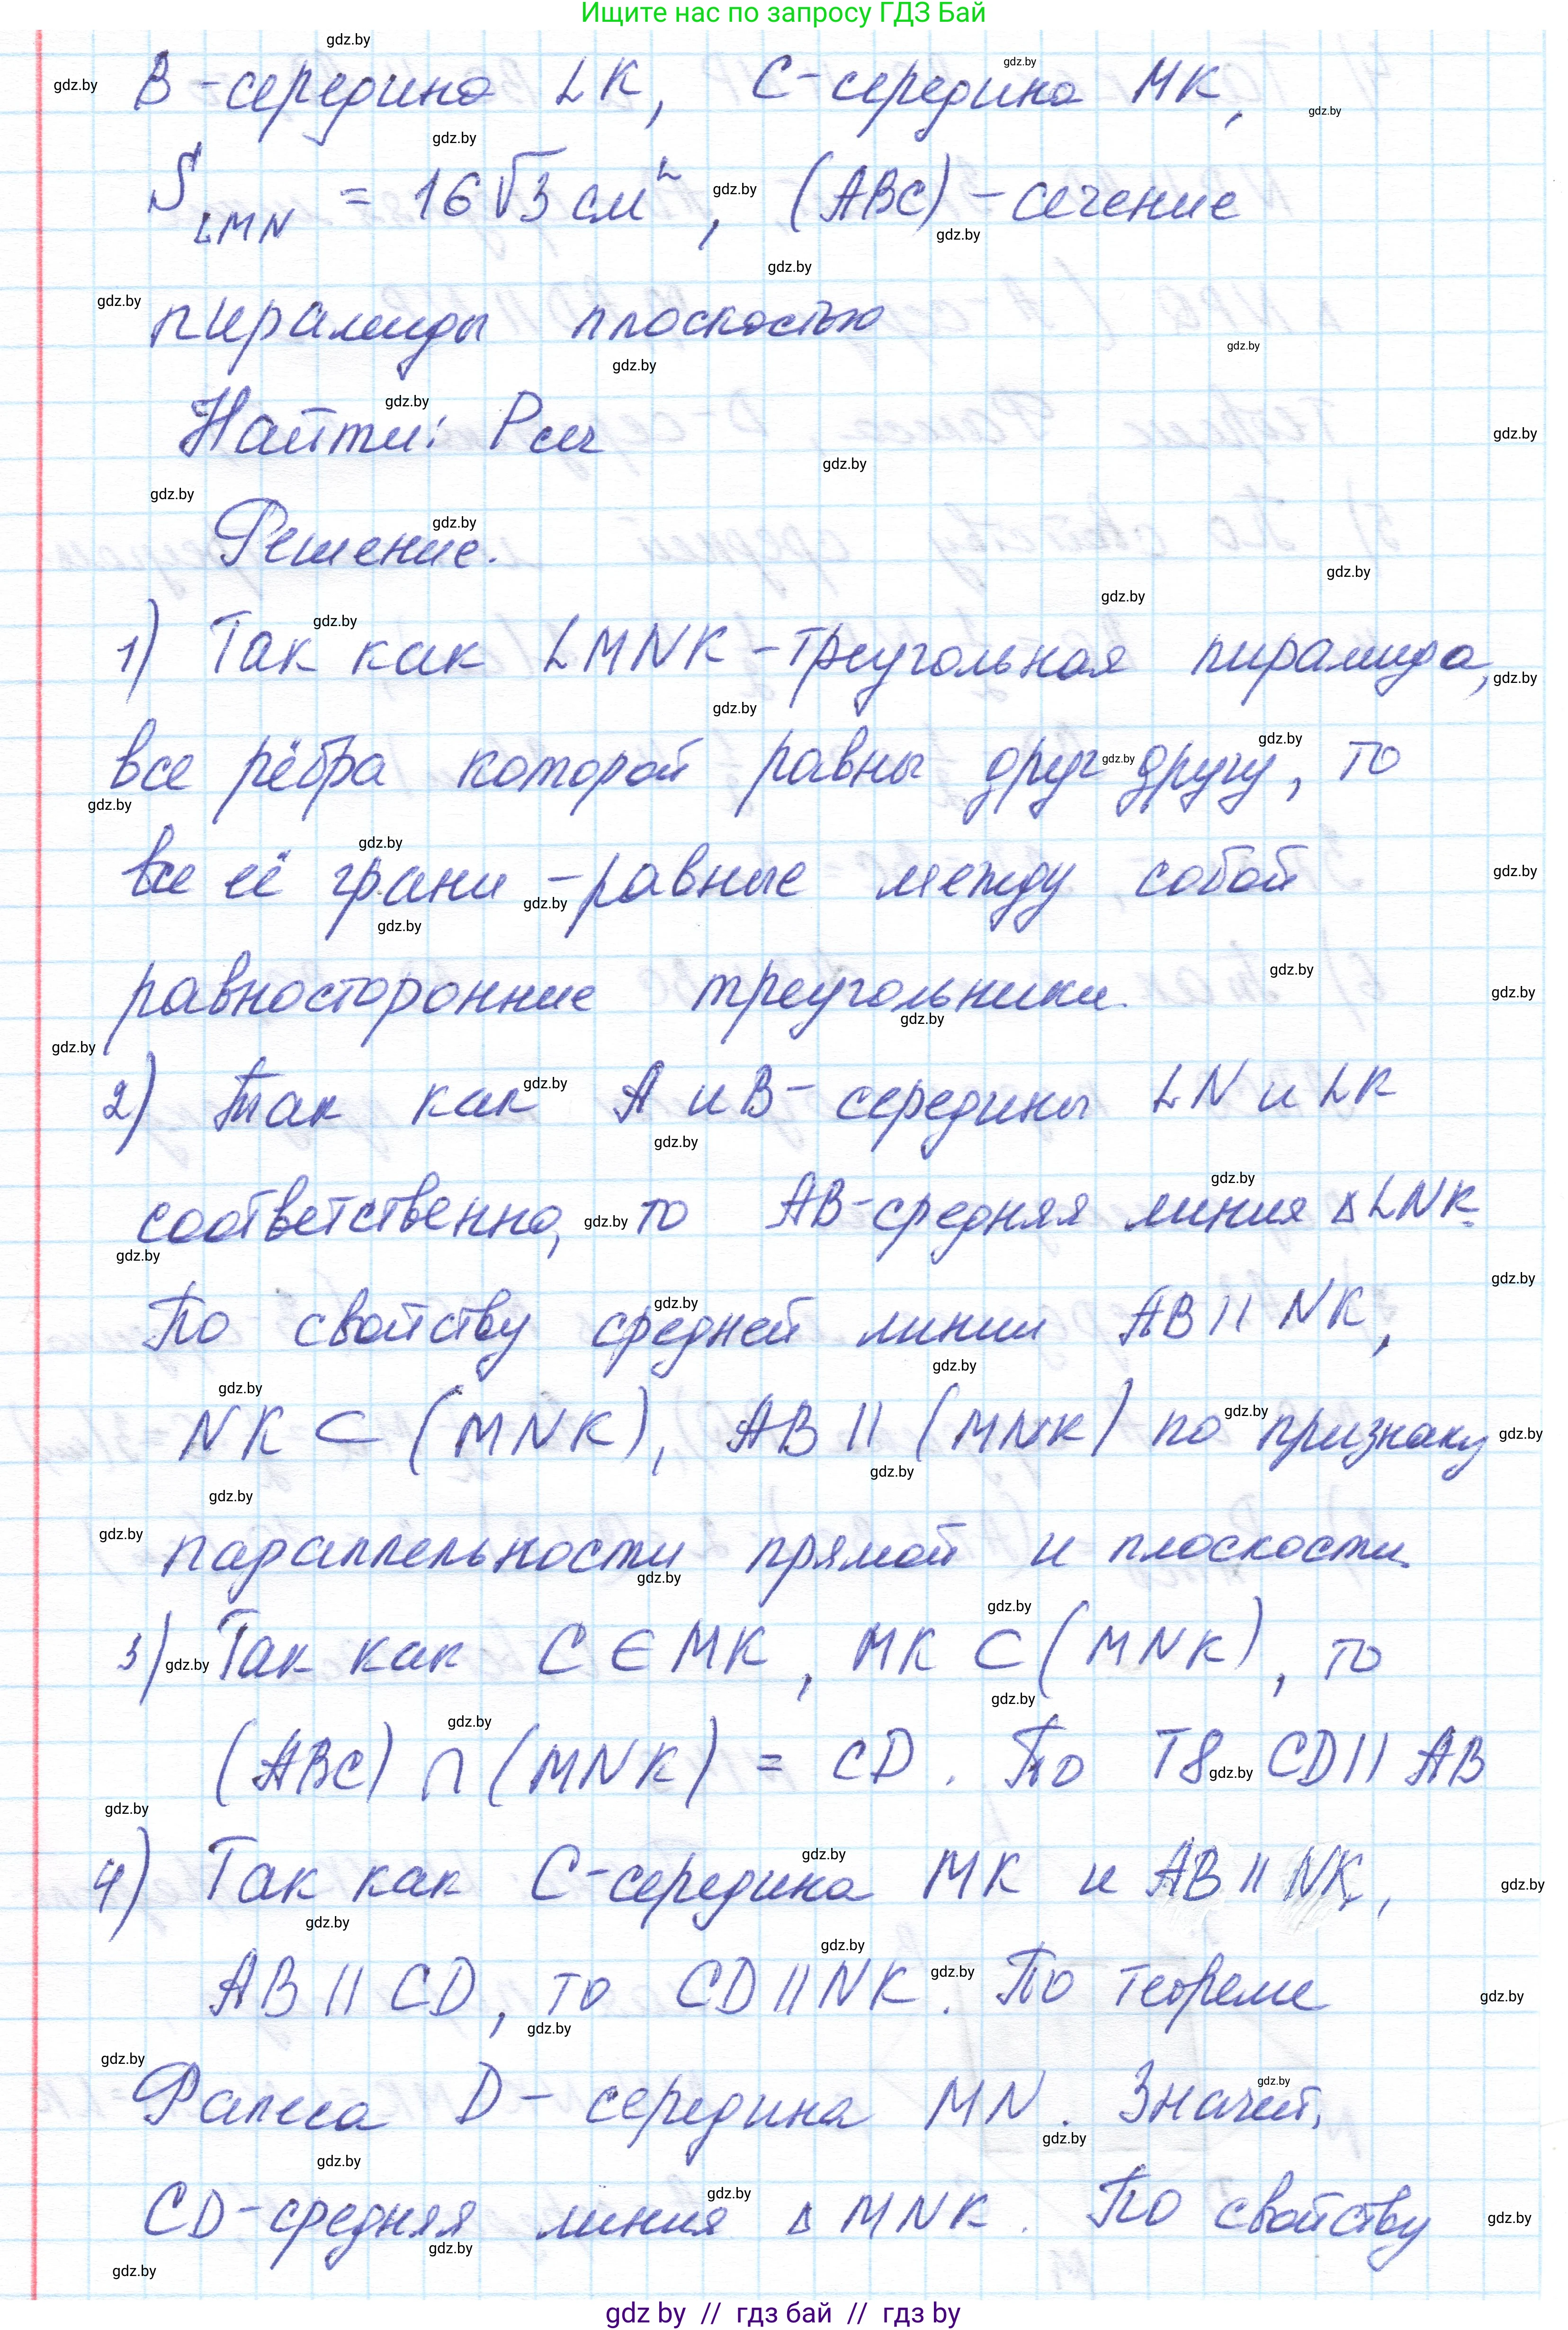 Ищите нас по запросу ГДЗ Бай
B - середина LK, C - середина MK,
S LMN = 16√3 см², (ABC) - сечение
пирамиды плоскостью
Найти: Pсеч
Решение.
1) Так как LMNK - треугольная пирамида,
все рёбра которой равны друг другу, то
все её грани - равные между собой
равносторонние треугольники.
2) Так как A и B - середины LN и LK
соответственно, то AB - средняя линия ΔLNK.
По свойству средней линии AB || NK,
NK ⊂ (MNK), AB || (MNK) по признаку
параллельности прямой и плоскости.
3) Так как C ∈ MK, MK ⊂ (MNK), то
(ABC) ∩ (MNK) = CD. По T8 CD || AB
4) Так как C - середина MK и AB || NK,
AB || CD, то CD || NK. По теореме
Фалеса D - середина MN. Значит,
CD - средняя линия Δ MNK. По свойству
gdz by // гдз бай // гдз by